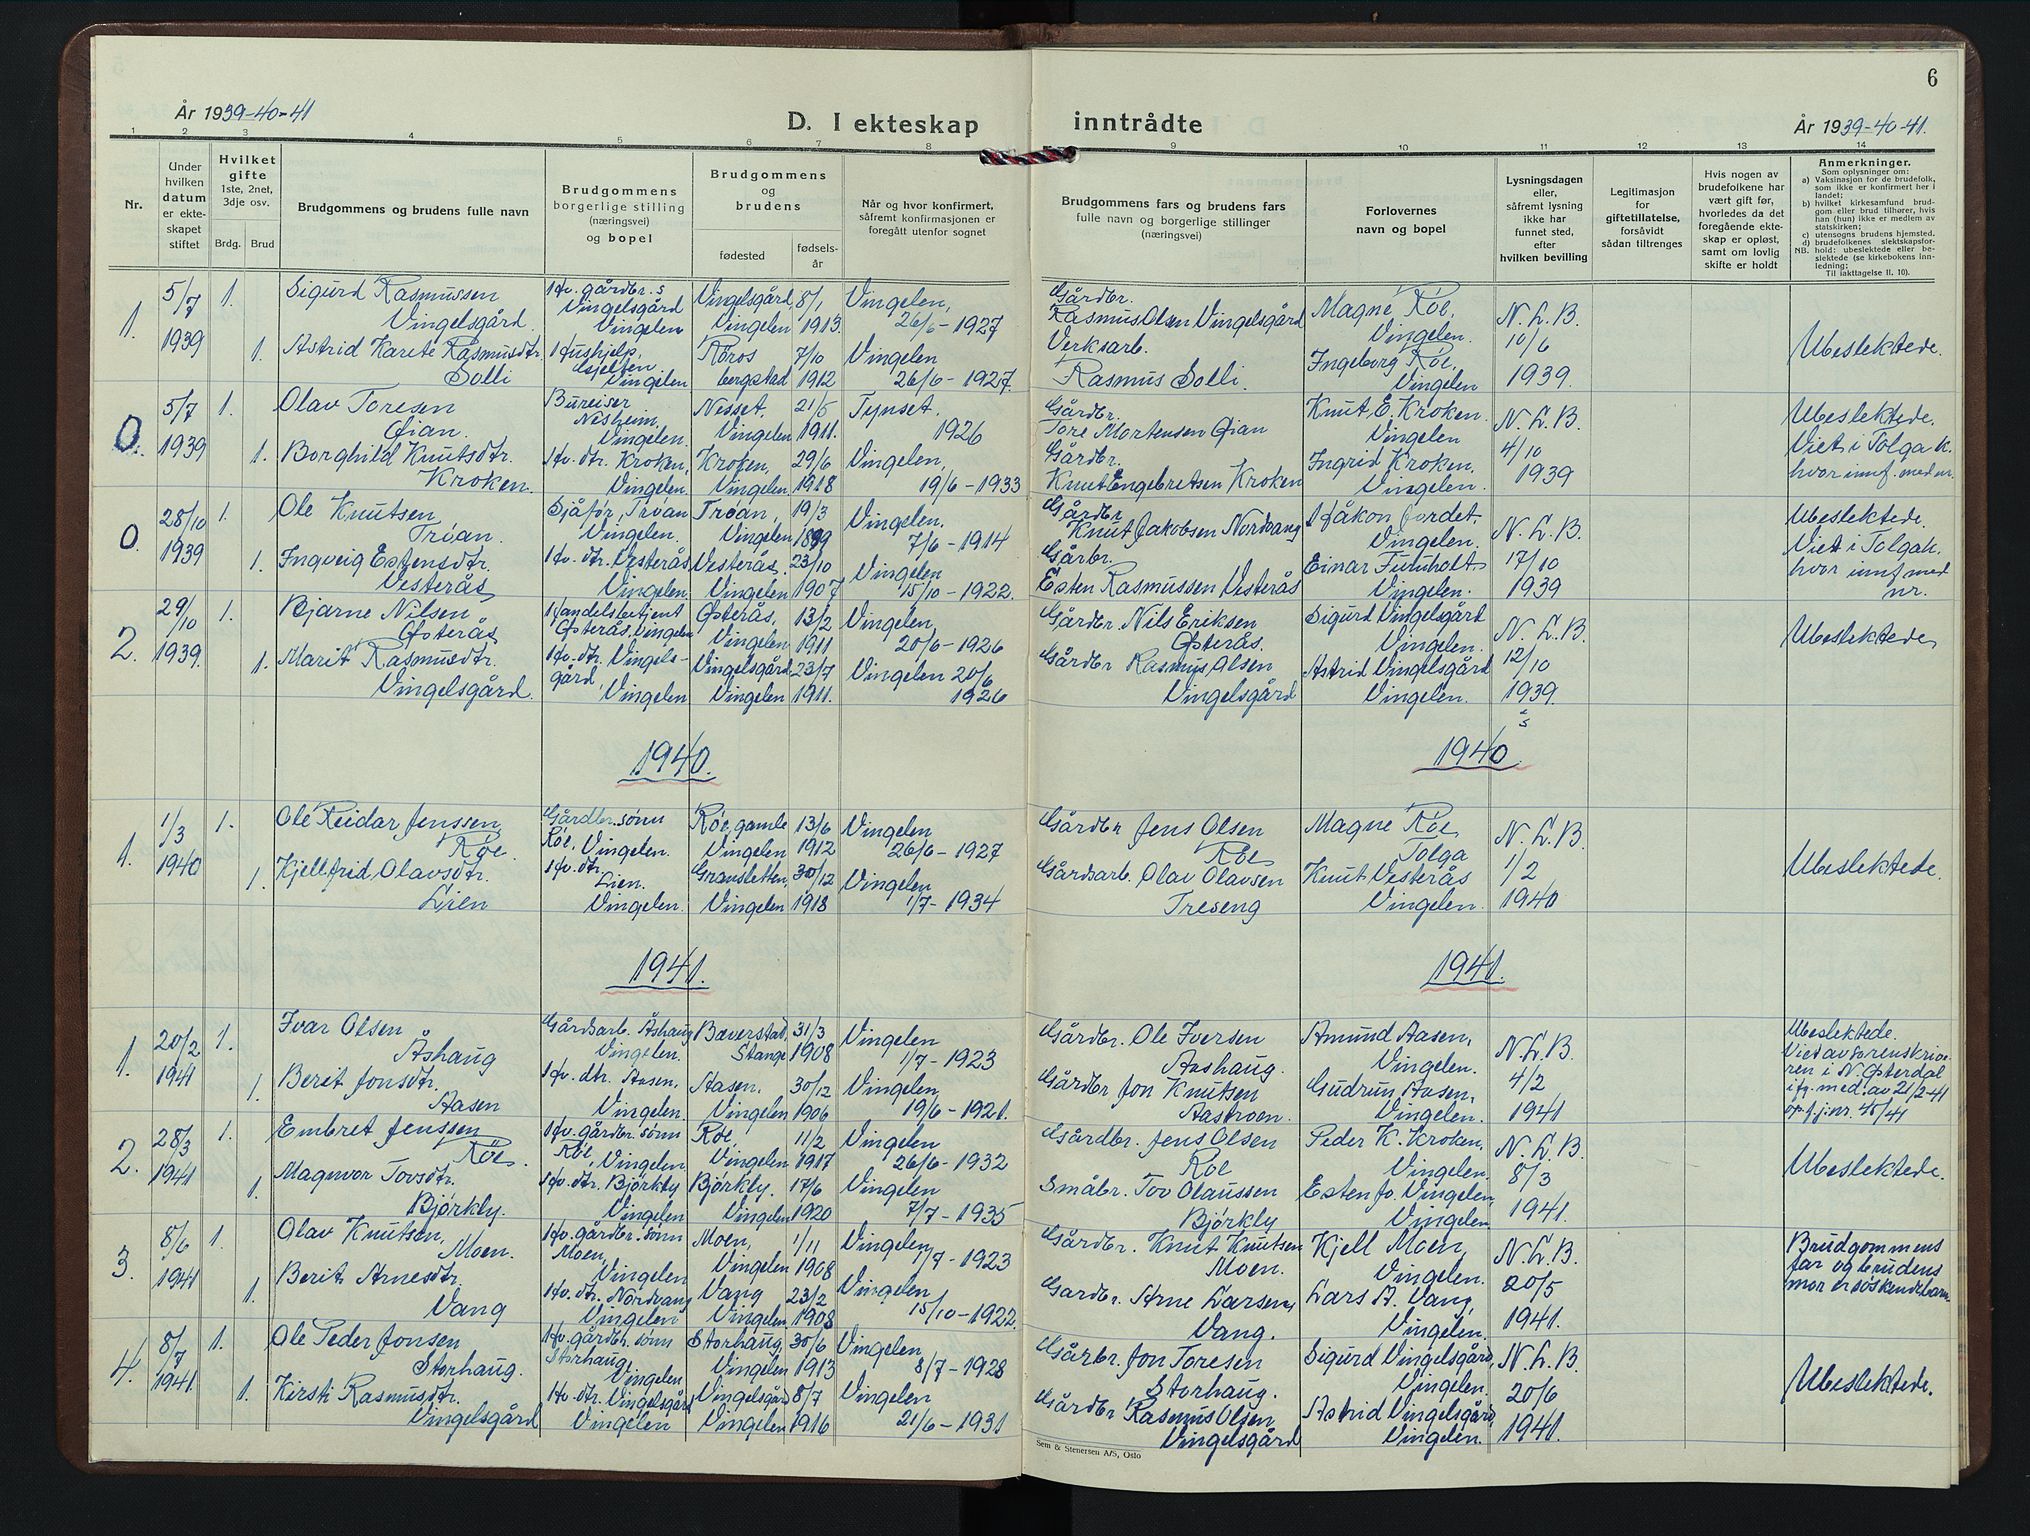 År 1939-40-41
D. I ekteskap
inntrådte
6
År 1939-40-41.
1 2 3 4 5 6 7 8 9 10 11 12 13 14
Nr.
Under hvilken datum er ekteskapet stiftet
Hvilket gifte
1ste, 2net, 3dje osv.
Brdg. Brud
Brudgommens og brudens fulle navn
Brudgommens borgerlige stilling (næringsvei) og bopel
Brudgommens og brudens
fødested
fødselsår
Når og hvor konfirmert, såfremt konfirmasjonen er foregått utenfor sognet
Brudgommens fars og brudens fars fulle navn og borgerlige stillinger (næringsvei)
Forlovernes navn og bopel
Lysningsdagen eller, såfremt lysning ikke har funnet sted, efter hvilken bevilling
Legitimasjon for giftetillatelse, forsåvidt sådan tiltrenges
Hvis nogen av brudefolkene har vært gift før, hvorledes da det foregående ekteskap er opløst, samt om lovlig skifte er holdt
Anmerkninger.
Som oplysninger om:
a) Vaksinasjon for de brudefolk, som ikke er konfirmert her i landet;
b) hvilket kirkesamfund brudgom eller brud tilhører, hvis han (hun) ikke er medlem av statskirken;
c) utensogns brudens hjemsted.
d) brudefolkenes slektskapsforhold: ubeslektede eller beslektede (se kirkebokens innledning;
NB.
Til iakttagelse II. 10).
1. 5/7 1939 1. Sigurd Rasmussen Vingelsgård. Vingelsgård Vingelen Vingelsgård, Vingelen 8/1 1913. Vingelen, 26/6-1927
Gårdbr. Rasmus Olsen Vingelsgård Magne Röe, Vingelen. N. L. B. 10/6 1939. Ubeslektede.
1. Astrid Karete Rasmusdtr. Solli Hushjelp, Vingelen Röros bergstad 7/10 1912 Vingelen 26/6-1927.
Verksarb. Rasmus Solli. Ingeborg Röe, Vingelen
0. 5/7 1939 1. Olav Toresen Øian. Bureiser Nesheim, Vingelen. Nesset. Vingelen 21/5 1911. Tynset. 1926
Gårdbr. Tore Mortensen Øian Knut E. Kroken. Vingelen N. L. B. 4/10 1939 Ubeslektede. Viet i Tolga k. hvor innf. med nr.
1. Borghild Knutsdtr. Kroken. Hv. dtr. Kroken, Vingelen. Kroken, Vingelen 29/6 1918 Vingelen, 19/6-1933
Gårdbr. Knut Engebretsen Kroken Ingrid Kroken. Vingelen.
0. 28/10 1939 1. Ole Knutsen Tröan. Sjåför, Tröan Vingelen. Tröan, Vingelen 19/3 1899 Vingelen. 7/6-1914
Gårdbr. Knut Jakobsen Nordvang Håkon Jordet, Vingelen. N. L. B. 17/10 1939 Ubeslektede. Viet i Tolga k. hvor innf. med nr.
1. Ingveig Estensdtr. Vesterås Hv. dtr. Vesterås Vingelen Vesterås. Vingelen 23/10 1907 Vingelen 15/10-1922.
Gårbr. Esten Rasmussen Vesterås Einar Furuholt Vingelen.
2. 29/10 1939. 1. Bjarne Nilsen Østerås Handelsbetjent Østerås, Vingelen Østerås, Vingelen 13/2 1911 Vingelen, 20/6-1926
Gårdbr. Nils Eriksen Østerås. Sigurd Vingelsgård Vingelen. N. L. B. 12/10 1939. Ubeslektede
1. Marit Rasmusdtr. Vingelsgård. Hv. dtr. Vingelsgård, Vingelen Vingelsgård Vingelen 23/7 1911. Vingelen 20/6 1926
Gårdbr Rasmus Olsen Vingelsgård Astrid Vingelsgård Vingelen.
1940. 1940.
1. 1/3 1940 1. Ole Reidar Jenssen Röe. Gårdbr. sönn Röe, Vingelen. Röe, gamle Vingelen 13/6 1912 Vingelen 26/6-1927
Gårdbr Jens Olsen Röe Magne Röe Tolga N. L. B. 1/2 1940 Ubeslektede.
1. Kjellfrid Olavsdtr. Lien Hv. dtr. Lien. Vingelen. Gransletten, Vingelen 30/12 1918 Vingelen 1/7-1934
Gårdsarb. Olav Olavsen Treseng Knut Vesterås Vingelen.
1941. 1941.
1. 20/2 1941 1. Ivar Olsen Åshaug Gårdsarb. Åshaug Vingelen. Bæverstad, Stange 31/3 1908 Vingelen 1/7-1923
Gårdbr. Ole Iversen Aashaug. Amund Aasen, Vingelen. N. L. B. 4/2 1941 Ubeslektede. Viet av sorenskriveren i N. Østerdal ifg. med. av 21/2-41
1. Berit Jonsdtr. Aasen Hv. dtr. Aasen. Vingelen. Aasen. Vingelen 30/12 1906 Vingelen, 19/6-1921.
Gårdbr Jon Knutsen Gudrun Aasen, Vingelen.
2. 28/3 1941 1. Embret Jenssen Röe. Hv. gårdbr. sönn Röe, Vingelen Röe, Vingelen 11/2 1917 Vingelen 26/6-1932
Gårdbr. Jens Olsen Röe Peder K. Kroken, Vingelen. N. L. B. 8/3 1941. Ubeslektede.
1. Magnvor Tovsdtr. Björkly. Hv. dtr. Björkly Vingelen Björkly. Vingelen 17/6 1920 Vingelen 7/7-1935
Småbr. Tov Olaussen Björkly Esten Jo. Vingelen, Vingelen
3. 8/6 1941 1. Olav Knutsen, Moen. Hv. gårdbr. sönn Moen, Vingelen Moen, Vingelen 1/11 1908 Vingelen 1/7-1923
Gårdbr. Knut Knutsen Moen. Kjell Moen, Vingelen. N. L. B. 20/5 1941. Brudgommens far og brudens mor er söskendebarn
1. Berit Arnesdtr. Vang Hv. dtr. Nordvang Vingelen Vang Vingelen 23/2 1908 Vingelen 15/10-1922.
Gårdbr. Arne Larsen, Vang. Lars A. Vang, Vingelen.
4. 8/7 1941. 1. Ole Peder Jonsen Storhaug. Hv. gårdbr. sönn Storhaug, Vingelen Storhaug, Vingelen 30/6 1913 Vingelen 8/7-1928
Gårbr. Jon Toresen Storhaug. Sigurd Vingelsgård, Vingelen. N. L. B. 20/6 1941. Ubeslektede.
1. Kirsti Rasmusdtr. Vingelsgård Hv. dtr. Vingelsgård Vingelen Vingelsgård Vingelen 8/7 1916 Vingelen 21/6-1931
Gårdbr Rasmus Olsen Vingelsgård Astrid Vingelsgård, Vingelen.
Sem & Stenersen A/S, Oslo